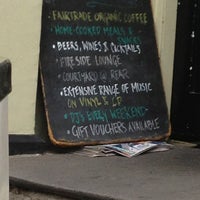 • FAIRTRADE ORGANIC COFFEE
• HOME-COOKED MEALS &
SNACKS
• BEERS, WINES & COCKTAILS
• FIRESIDE LOUNGE
• COURTYARD @ REAR
• EXTENSIVE RANGE OF MUSIC
ON VINYL & CD
• DJ'S EVERY WEEKEND•
• GIFT VOUCHERS AVAILABLE